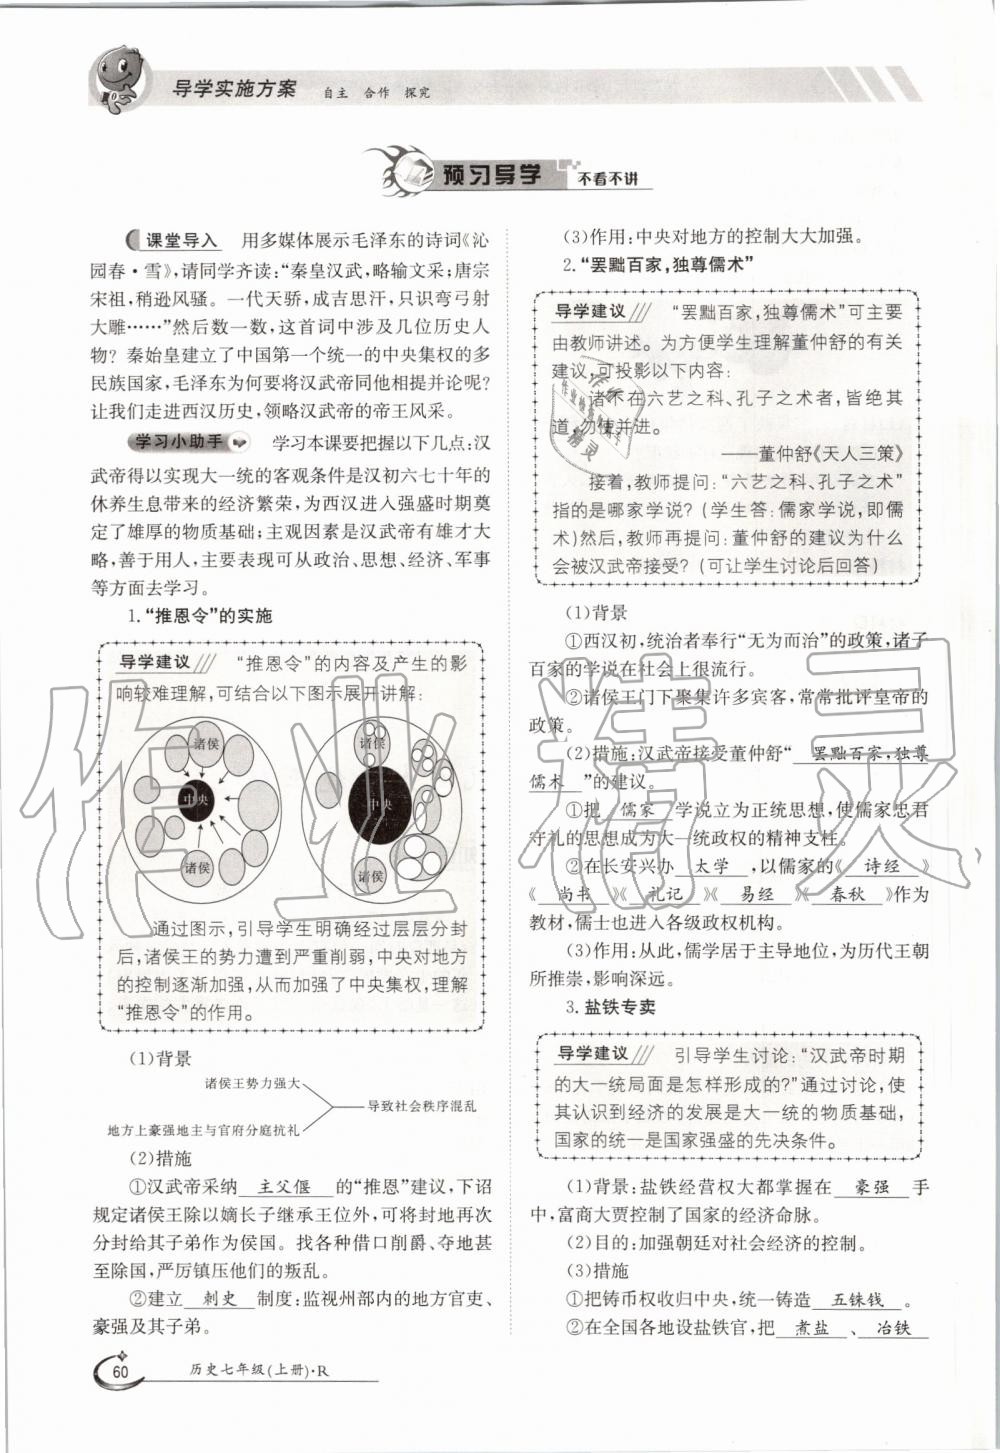 导学实施方案 自主 合作 探究
预习导学 不看不讲
课堂导入 用多媒体展示毛泽东的诗词《沁
园春·雪》,请同学齐读:“秦皇汉武,略输文采;唐宗
宋祖,稍逊风骚。一代天骄,成吉思汗,只识弯弓射
大雕……”然后数一数,这首词中涉及几位历史人
物？秦始皇建立了中国第一个统一的中央集权的多
民族国家,毛泽东为何要将汉武帝同他相提并论呢?
让我们走进西汉历史,领略汉武帝的帝王风采。
学习小助手 学习本课要把握以下几点:汉
武帝得以实现大一统的客观条件是汉初六七十年的
休养生息带来的经济繁荣,为西汉进入强盛时期奠
定了雄厚的物质基础;主观因素是汉武帝有雄才大
略,善于用人,主要表现可从政治、思想、经济、军事
等方面去学习。
1.“推恩令”的实施
导学建议 “推恩令”的内容及产生的影
响较难理解,可结合以下图示展开讲解:
诸侯
中央
诸侯
诸侯
中央
诸侯
通过图示,引导学生明确经过层层分封
后,诸侯王的势力遭到严重削弱,中央对地方
的控制逐渐加强,从而加强了中央集权,理解
“推恩令”的作用。
(1)背景
诸侯王势力强大
导致社会秩序混乱
地方上豪强地主与官府分庭抗礼
(2)措施
①汉武帝采纳 主父偃 的“推恩”建议,下诏
规定诸侯王除以嫡长子继承王位外,可将封地再次
分封给其子弟作为侯国。找各种借口削爵、夺地甚
至除国,严厉镇压他们的叛乱。
②建立 刺史 制度:监视州部内的地方官吏、
豪强及其子弟。
(3)作用:中央对地方的控制大大加强。
2.“罢黜百家,独尊儒术”
导学建议 “罢黜百家,独尊儒术”可主要
由教师讲述。为方便学生理解董仲舒的有关
建议,可投影以下内容:
诸不在六艺之科、孔子之术者,皆绝其
道,勿使并进。
——董仲舒《天人三策》
接着,教师提问:“六艺之科、孔子之术”
指的是哪家学说?(学生答:儒家学说,即儒
术)然后,教师再提问:董仲舒的建议为什么
会被汉武帝接受?(可让学生讨论后回答)
(1)背景
①西汉初,统治者奉行“无为而治”的政策,诸子
百家的学说在社会上很流行。
②诸侯王门下聚集许多宾客,常常批评皇帝的
政策。
(2)措施:汉武帝接受董仲舒“ 罢黜百家,独尊
儒术 ”的建议。
①把 儒家 学说立为正统思想,使儒家忠君
守礼的思想成为大一统政权的精神支柱。
②在长安兴办 太学 ,以儒家的《 诗经 》
《 尚书 》《 礼记 》《 易经 》《 春秋 》作为
教材,儒士也进入各级政权机构。
(3)作用:从此,儒学居于主导地位,为历代王朝
所推崇,影响深远。
3. 盐铁专卖
导学建议 引导学生讨论:“汉武帝时期
的大一统局面是怎样形成的?”通过讨论,使
其认识到经济的发展是大一统的物质基础,
国家的统一是国家强盛的先决条件。
(1)背景:盐铁经营权大都掌握在 豪强 手
中,富商大贾控制了国家的经济命脉。
(2)目的:加强朝廷对社会经济的控制。
(3)措施
①把铸币权收归中央,统一铸造 五铢钱 。
②在全国各地设盐铁官,把 煮盐 、 冶铁
60 历史七年级(上册)·R
作业精灵